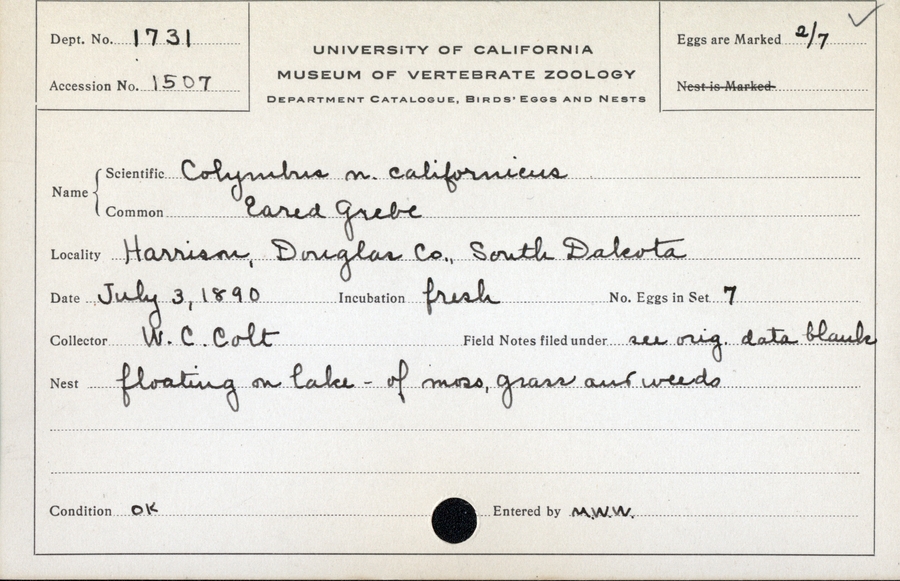 Dept. No. 1731
Accession No. 1507
UNIVERSITY OF CALIFORNIA
MUSEUM OF VERTEBRATE ZOOLOGY
DEPARTMENT CATALOGUE, BIRDS' EGGS AND NESTS
Eggs are Marked 2/7
Nest is Marked
Name
Scientific Colymbus n. californicus
Common Eared Grebe
Locality Harrison, Douglas Co., South Dakota
Date July 3, 1890 Incubation fresh No. Eggs in Set 7
Collector W. C. Colt Field Notes filed under see orig. data blank
Nest floating on lake - of moss, grass and weeds
Condition OK Entered by M.W.W.